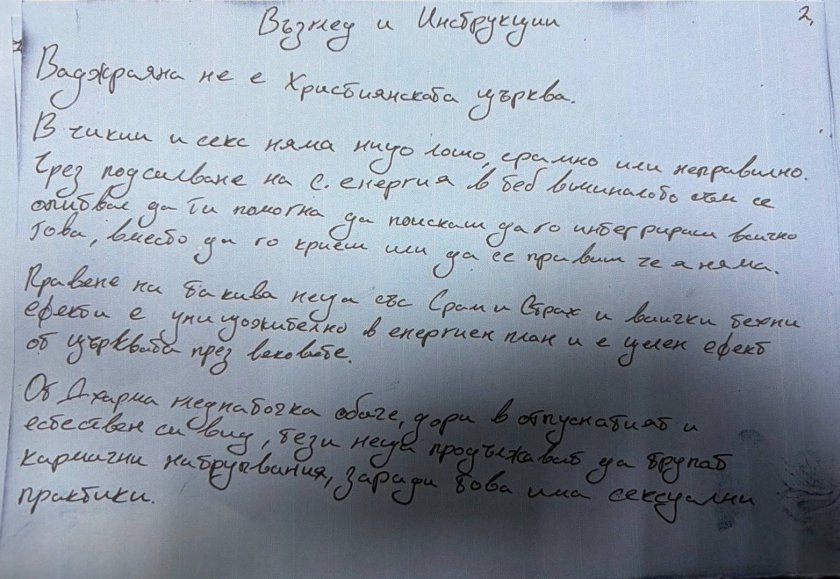 2.
Възглед и Инструкции
Ваджраяна не е Християнската църква.
В чикии и секс няма нищо лошо, срамно или неправилно.
Чрез подсилване на с. енергия в теб винаги съм се
опитвал да ти помогна да поискаш да го интегрираш всичко
това, вместо да го криеш или да се правиш че я няма.
Правене на такива неща със Срам и Страх и всички техни
ефекти е унищожително в енергиен план и е целен ефект
от църквата през вековете.
От Дхарма гледна точка обаче, дори в отпуснатият и
естествен си вид, тези неща продължават да трупат
кармични натрупвания, заради това има сексуални
практики.